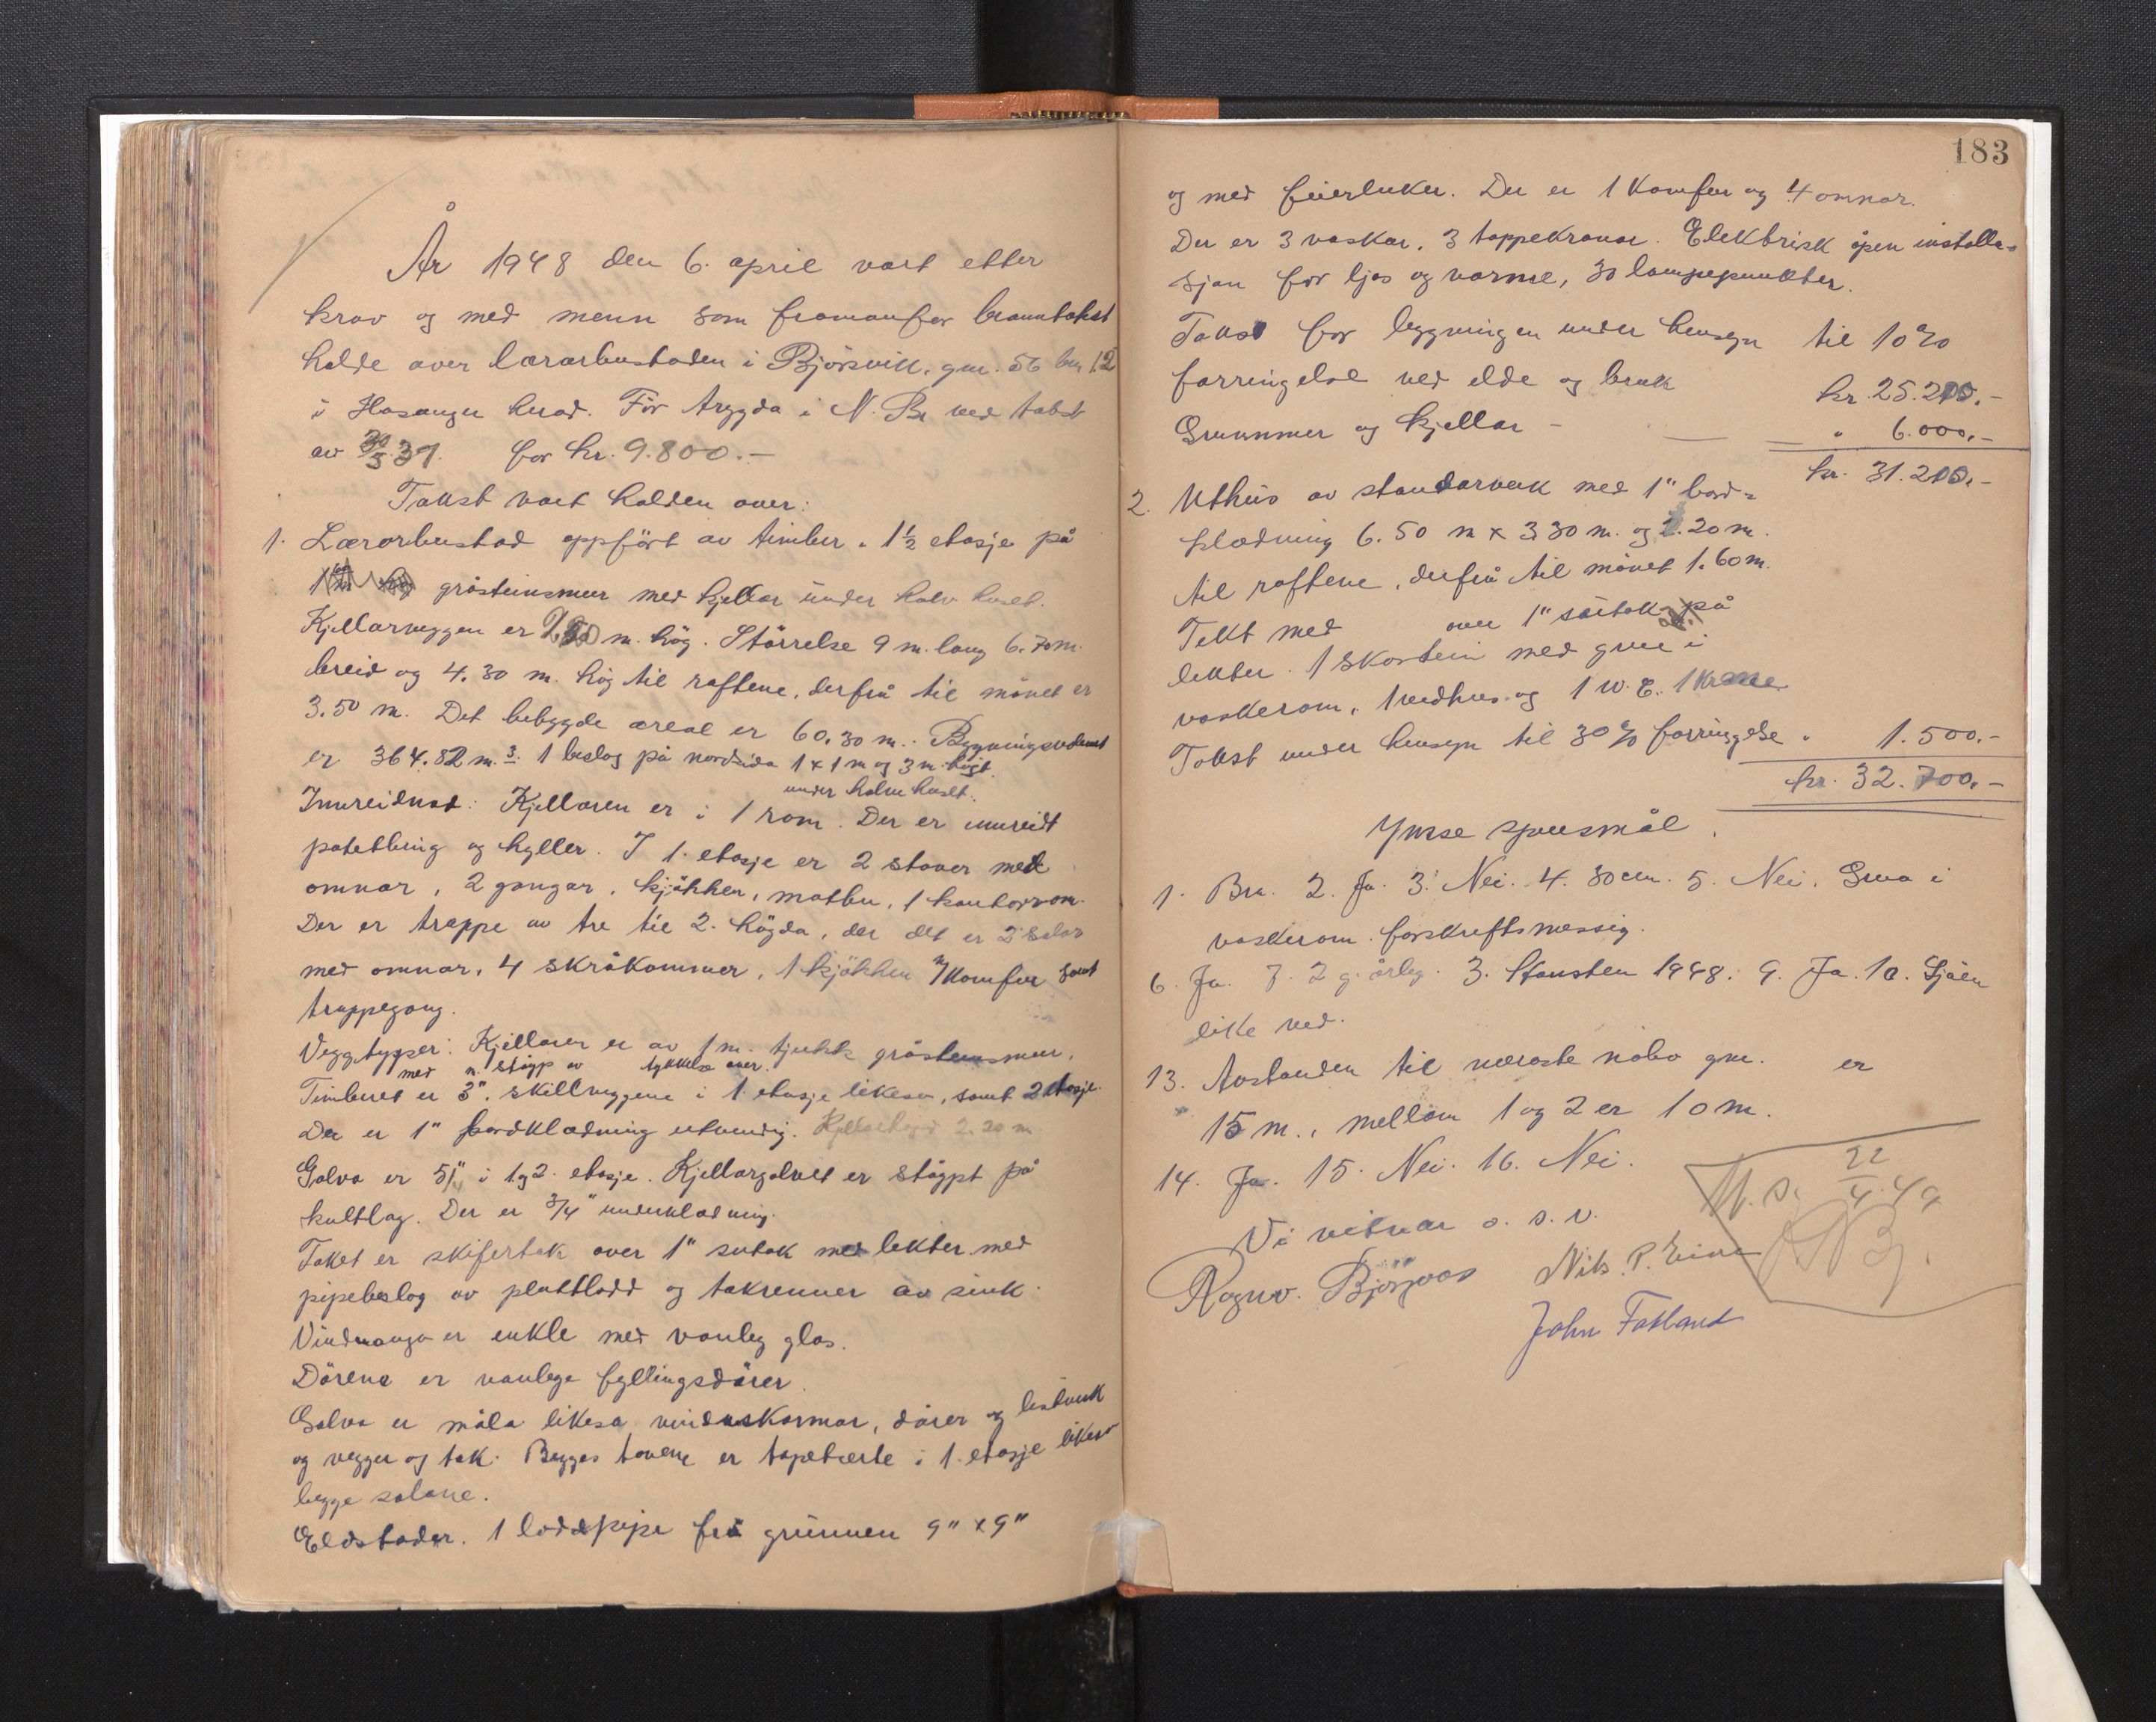 År 1948 den 6. april vart etter
krav og med menn som framanfor branntakst
halde over lærarbustaden i Bjørsvik, gnr. 56 bnr 12
i Hosanger herad. Før trygda i N. Br ved takst
av 20/5.37. for kr. 9.800.-
Takst vart halden over:
1. Lærarbustad oppført av timber. 1½ etasje på
gråsteinsmur med kjellar under halv huset.
Kjellarveggen er m. høg. Størrelse 9 m. lang 6.70 m.
breid og 4.30 m. høg til raftene, derfrå til mønet er
3.50 m. Det bebygde areal er 60.30 m. Bygningsvolumet
er 364.82 m.3. 1 beslag på nordsida 1 x 1 m og 3 m. høgt.
under halve huset.
Innreidnad: Kjellaren er i 1 rom. Der er innreidt
potetbing og hyller. I 1. etasje er 2 stover med
omnar, 2 gangar, kjøkken, matbu, 1 kontorrom.
Der er trappe av tre til 2. høgda, der det er 2 salar
med omnar, 4 skråkammer, 1 kjøkken m/komfur samt
trappegang.
Veggtyper: Kjellaren er av 1 m. tjukk gråsteinsmur,
med m. støyp av tykkelse over.
Timberet er 3". Skilleveggene i 1. etasje likeso, samt 2 etasje.
Der er 1" bordklædning utvendig. Kjellarhøgd 2.20 m
Golva er 5/4" i 1 og 2. etasje. Kjellargolvet er støypt på
kultlag. Der er 3/4" underklædning.
Taket er skifertak over 1" sutak med lekter med
pipebeslag av plattlodd og takrenner av sink.
Vindauga er enkle med vanleg glas.
Dørene er vanlege fyllingsdører.
Golva er måla likeso vindaskarmar, dører og listverk
og vegger og tak. Begge stovene er tapetserte i 1. etasje likeso
begge salane.
Eldstader. 1 loddpipe frå grunnen 9" x 9"
183
og med feierluker. Der er 1 komfur og 4 omnar.
Der er 3 vaskar, 3 tappekranar. Elektrisk åpen installa-
sjon for ljos og varme, 30 lampepunkter.
Takst for bygningen under hensyn til 10%
forringelse ved elde og bruk kr. 25.200.-
Grunnmur og kjellar - " 6.000.-
kr. 31.200.-
2. Uthus av standarverk med 1" bord-
klædning 6.50 m x 3.30 m. og 2.20 m.
til raftene, derfrå til mønet 1.60 m.
Tekt med over 1" sutak på
lekter. 1 skorstein med grue i
vaskerom, 1 vedhus og 1 W.C. 1 krane
Takst under hensyn til 30% forringelse " 1.500.-
kr. 32.700.-
Ymse spursmål.
1. Bra. 2. Ja. 3. Nei. 4. 80 cm. 5. Nei. Grua i
vaskerom forskriftsmessig.
6. Ja. 7. 2 g. årleg. 3. Hausten 1948. 9. Ja. 10. Sjøen
like ved.
13. Avstanden til næraste nabo gnr. er
15 m., mellom 1 og 2 er 10 m.
14. Ja. 15. Nei. 16. Nei.
Vi vitnar o. s. v.
Ragnv. Bjørgaas Nils P. Eine
John Fatland
22/4.49